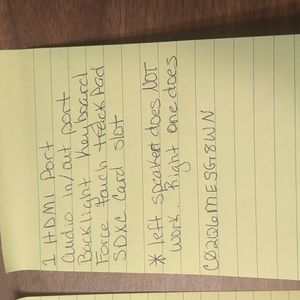 1 HDMI Port
audio in/out port
Backlight Keyboard
Force touch track Pad
SDXC Card slot
* left speaker does NOT
work. Right one does
C02Q6MESG8WN